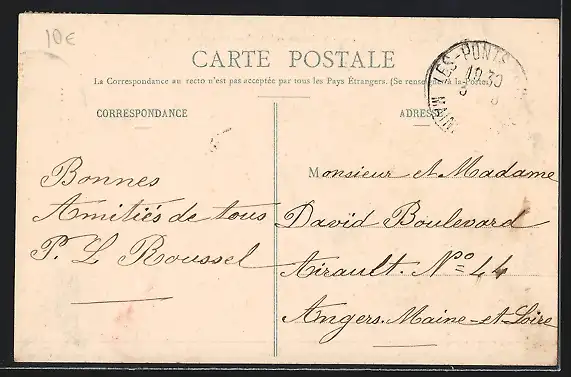 10€
CARTE POSTALE
La Correspondance au recto n'est pas acceptée par tous les Pays Étrangers. (Se renseigner à la Poste)
LES-PONTS
10 30
CORRESPONDANCE
ADRESSE
Bonnes
Amitiés de tous
P. L Roussel
Monsieur et Madame
David Boulevard
Airault. Nº 44
Angers. Maine-et-Loire